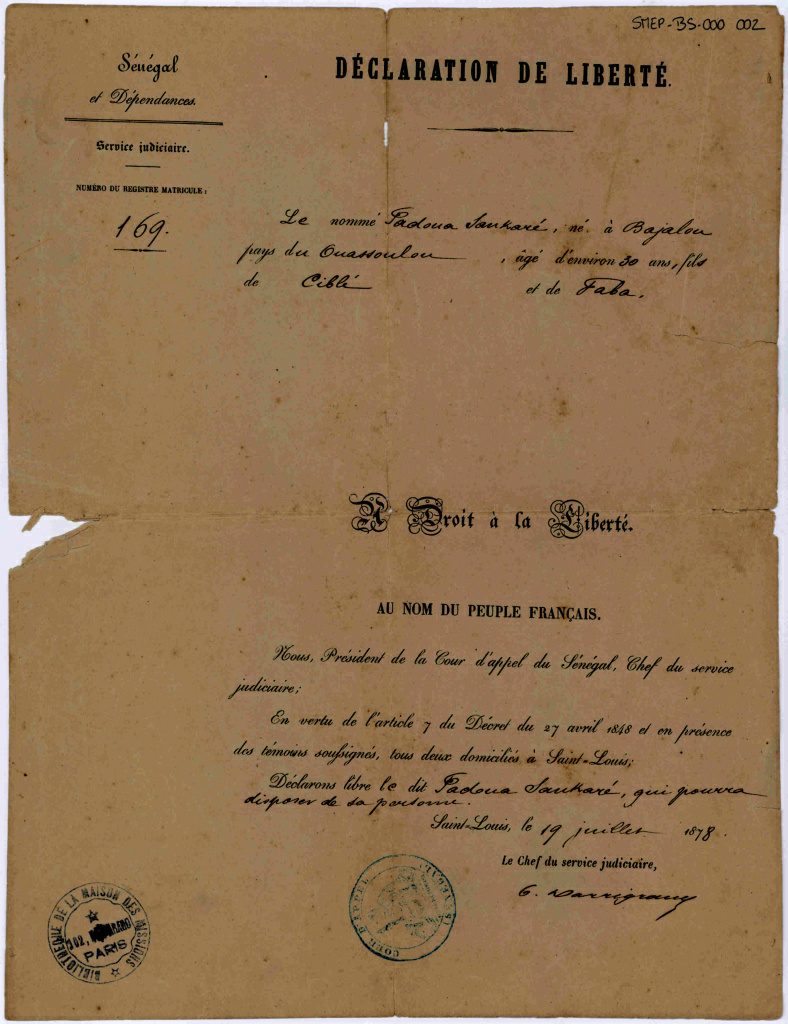 SMEP-BS-000 002
Sénégal
et Dépendances.
Service judiciaire.
NUMÉRO DU REGISTRE MATRICULE :
169.
DÉCLARATION DE LIBERTÉ.
Le nommé Padoua Sankaré, né à Bajalou
pays du Ouassoulou, âgé d'environ 30 ans, fils
de Ciblé et de Faba.
A Droit à la Liberté.
AU NOM DU PEUPLE FRANÇAIS.
Nous, Président de la Cour d'appel du Sénégal, Chef du service
judiciaire;
En vertu de l'article 7 du Décret du 27 avril 1848 et en présence
des témoins soussignés, tous deux domiciliés à Saint-Louis;
Déclarons libre le dit Padoua Sankaré, qui pourra
disposer de sa personne.
Saint-Louis, le 19 juillet 1878.
Le Chef du service judiciaire,
COUR D'APPEL
BIBLIOTHEQUE DE LA MAISON DES MISSIONS
102,
PARIS